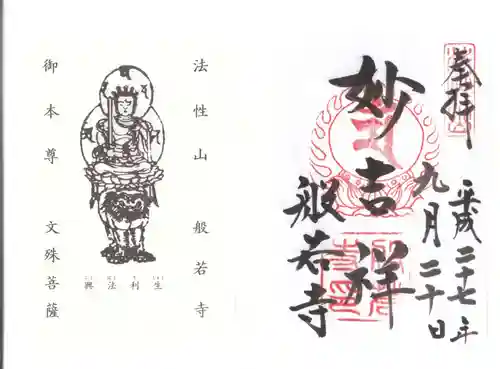 奉拝
平成二十七年
九月二十日
妙吉祥
般若寺
法性山 般若寺
御本尊 文殊菩薩
興法利生